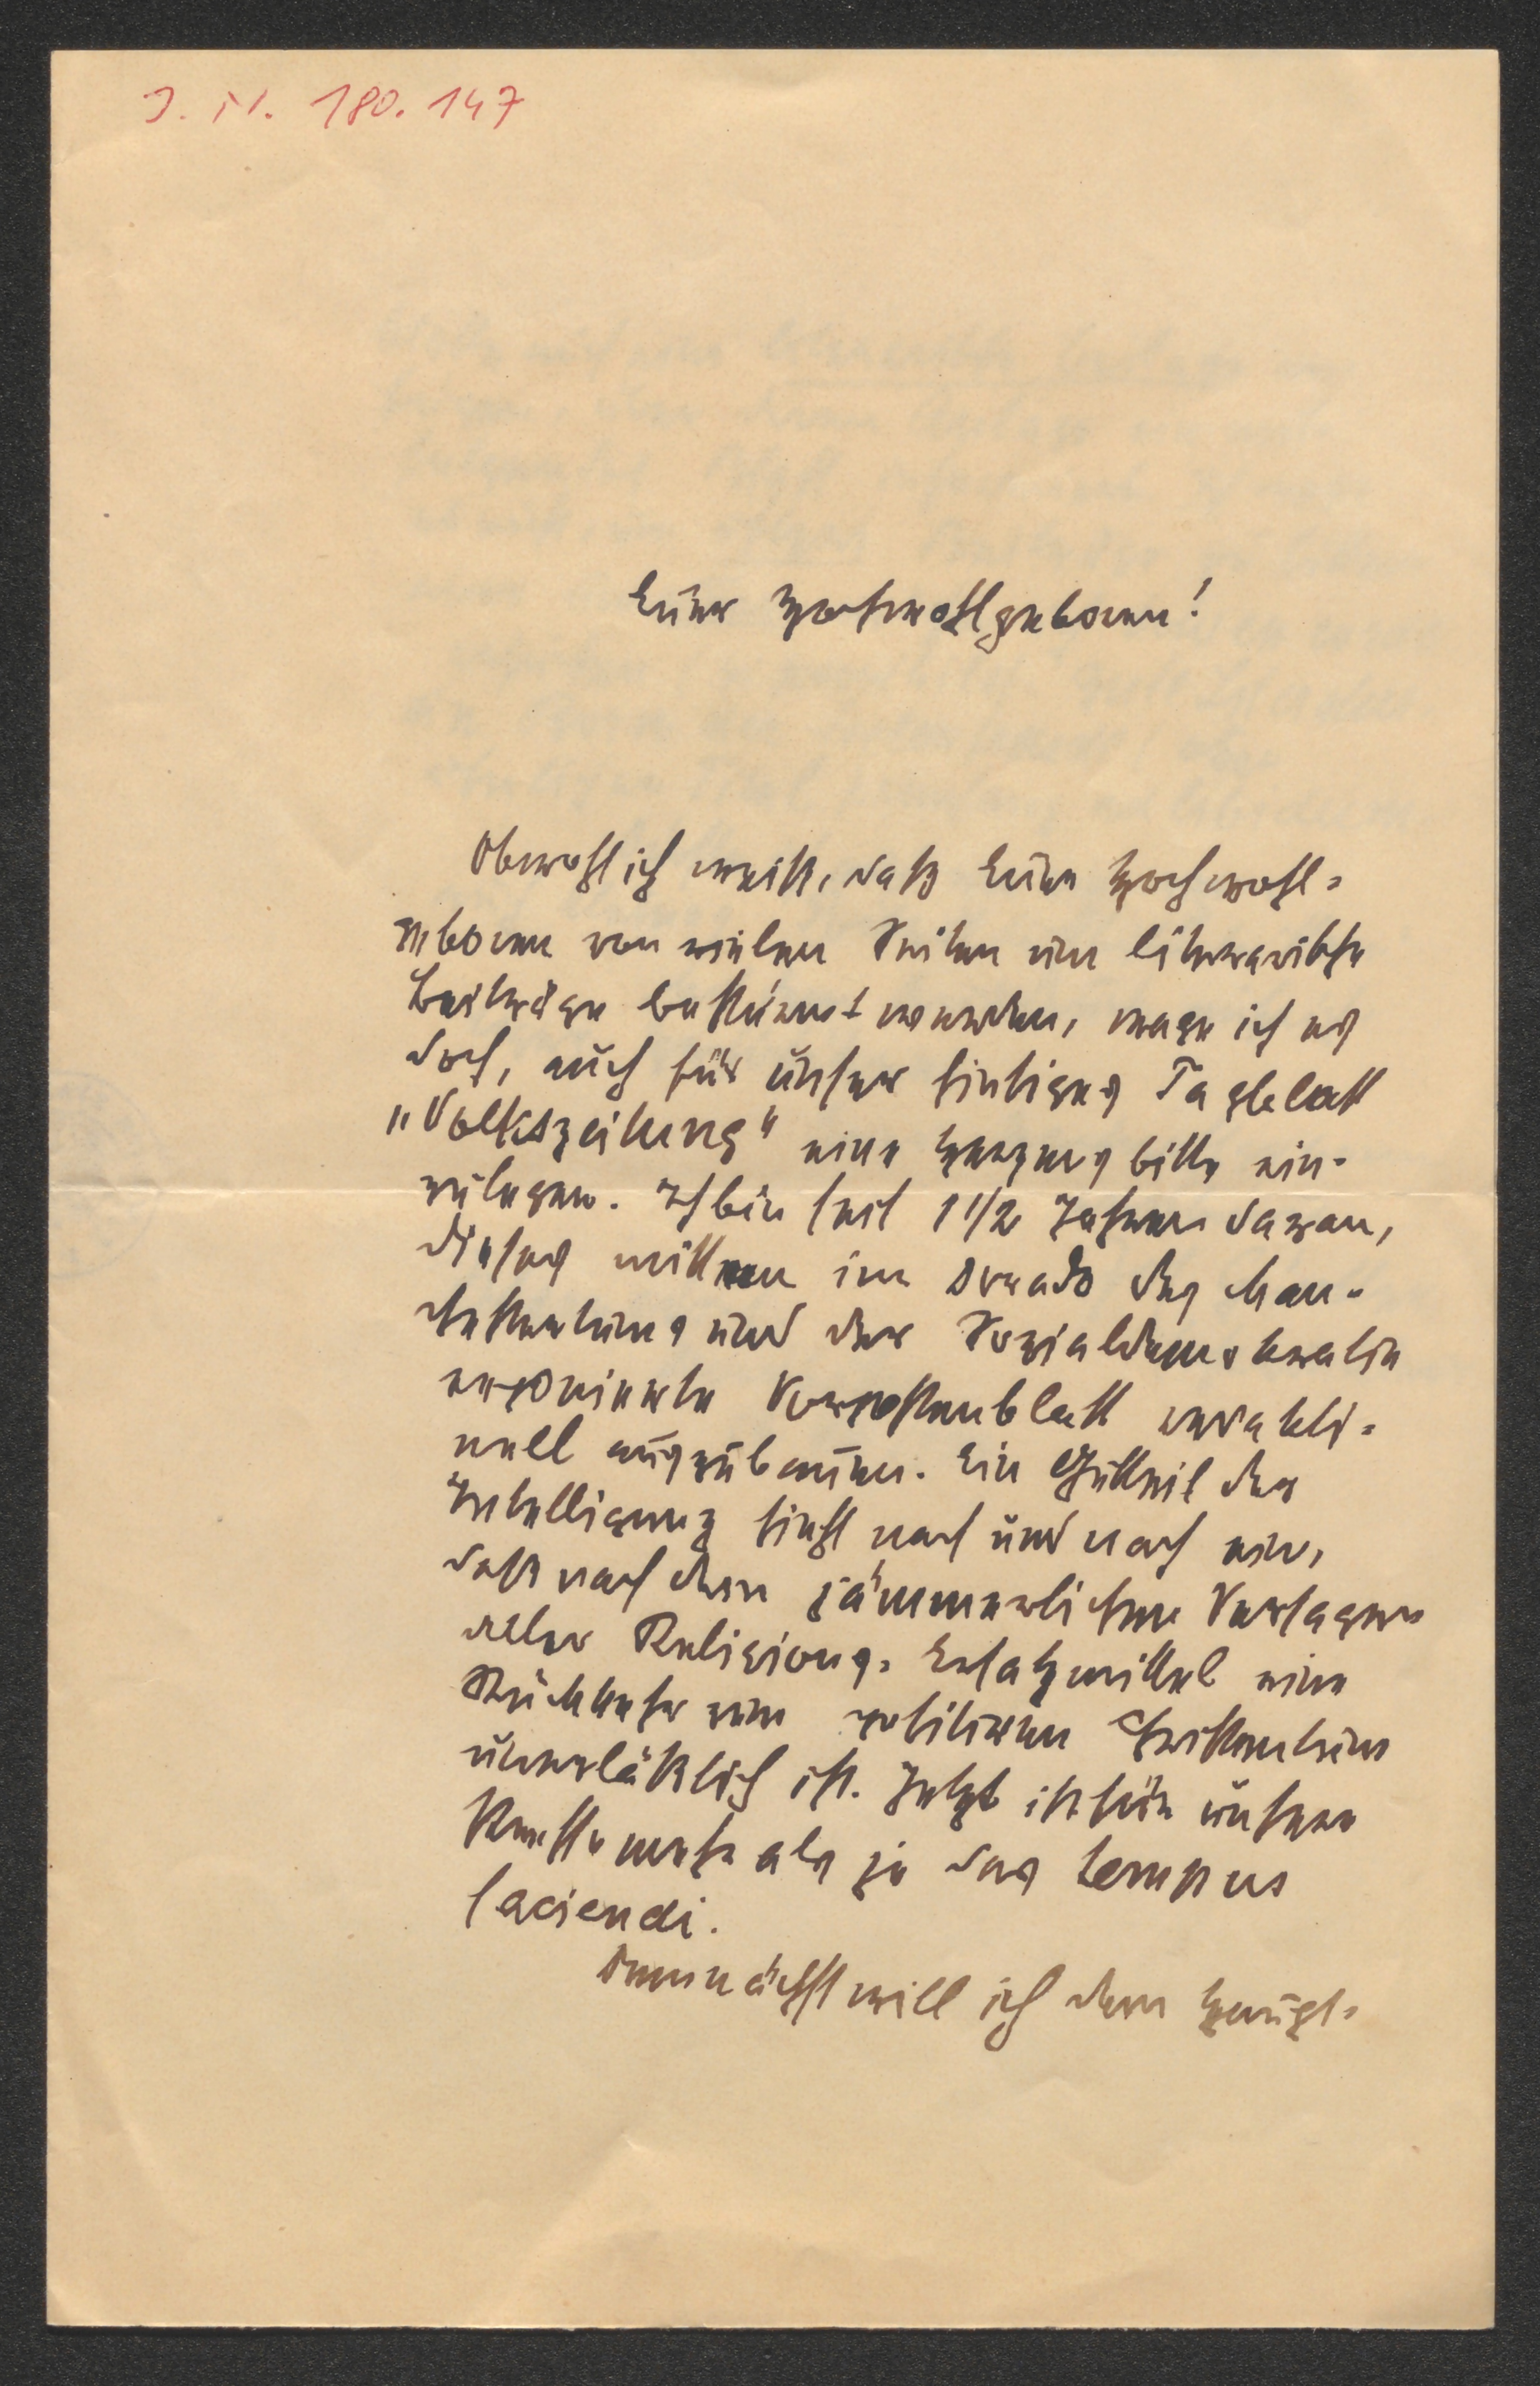 J. N. 180.147
Euer Hochwohlgeboren!
Obwohl ich weiß, daß Euer Hochwohl-
geboren von vielen Seiten um literarische
Beiträge bestürmt werden, wage ich es
doch, auch für unser hiesiges Tagblatt
„Volkszeitung" eine Herzensbitte ein-
zulegen. Ich bin seit 1 1/2 Jahren daran,
dieses mitten im des Man-
chestertums und der Sozialdemokratie
exponierte Vorpostenblatt redaktio-
nell auszubauen. Ein Gutteil der
Intelligenz sieht nach und nach ein,
daß nach dem jämmerlichen Versagen
aller Religions-Ersatzmittel eine
Rückkehr zum positiven Christentum
unerläßlich ist. Jetzt ist für unsere
Presse mehr als je das tempus
faciendi.
Demnächst will ich dem Haupt-